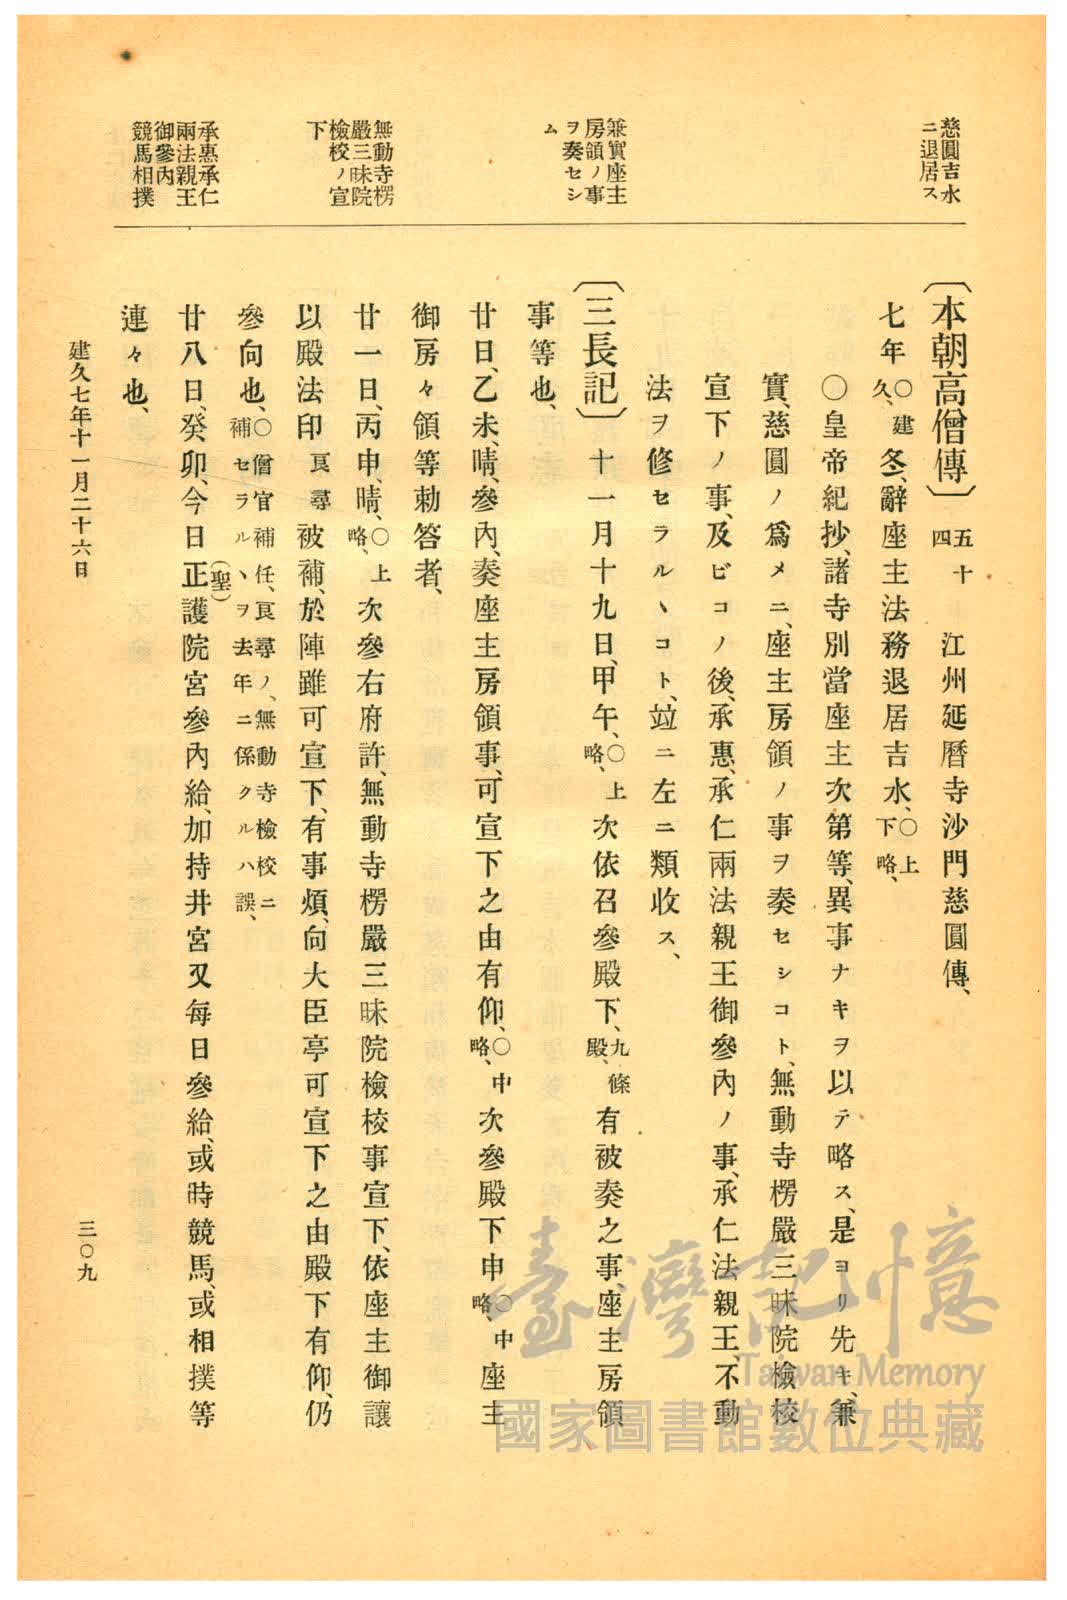 慈圓吉水
ニ退居ス
兼實座主
房領ノ事
ヲ奏セシ
ム
無動寺楞
嚴三昧院
檢校ノ宣
下
承惠承仁
兩法親王
御參內
競馬相撲
〔本朝高僧傳〕五十四 江州延曆寺沙門慈圓傳、
七年〇建久、冬、辭座主法務退居吉水、〇上下略、
〇皇帝紀抄、諸寺別當座主次第等、異事ナキヲ以テ略ス、是ヨリ先キ、兼
實、慈圓ノ爲メニ、座主房領ノ事ヲ奏セシコト、無動寺楞嚴三昧院檢校
宣下ノ事、及ビコノ後、承惠、承仁兩法親王御參內ノ事、承仁法親王、不動
法ヲ修セラルヽコト、竝ニ左ニ類收ス、
〔三長記〕十一月十九日、甲午、〇上略、次依召參殿下、九條殿、有被奏之事、座主房領
事等也、
廿日、乙未、晴、參內、奏座主房領事、可宣下之由有仰、〇中略、次參殿下申〇中略、座主
御房々領等勅答者、
廿一日、丙申、晴、〇上略、次參右府許、無動寺楞嚴三昧院檢校事宣下、依座主御讓
以殿法印良尋被補、於陣雖可宣下、有事煩、向大臣亭可宣下之由殿下有仰、仍
參向也、〇僧官補任、良尋ノ、無動寺檢校ニ補セラルヽヲ去年ニ係クルハ誤、
廿八日、癸卯、今日正(聖)護院宮參內給、加持井宮又每日參給、或時競馬、或相撲等
連々也、
建久七年十一月二十六日
三〇九
臺灣記憶
Taiwan Memory
國家圖書館數位典藏